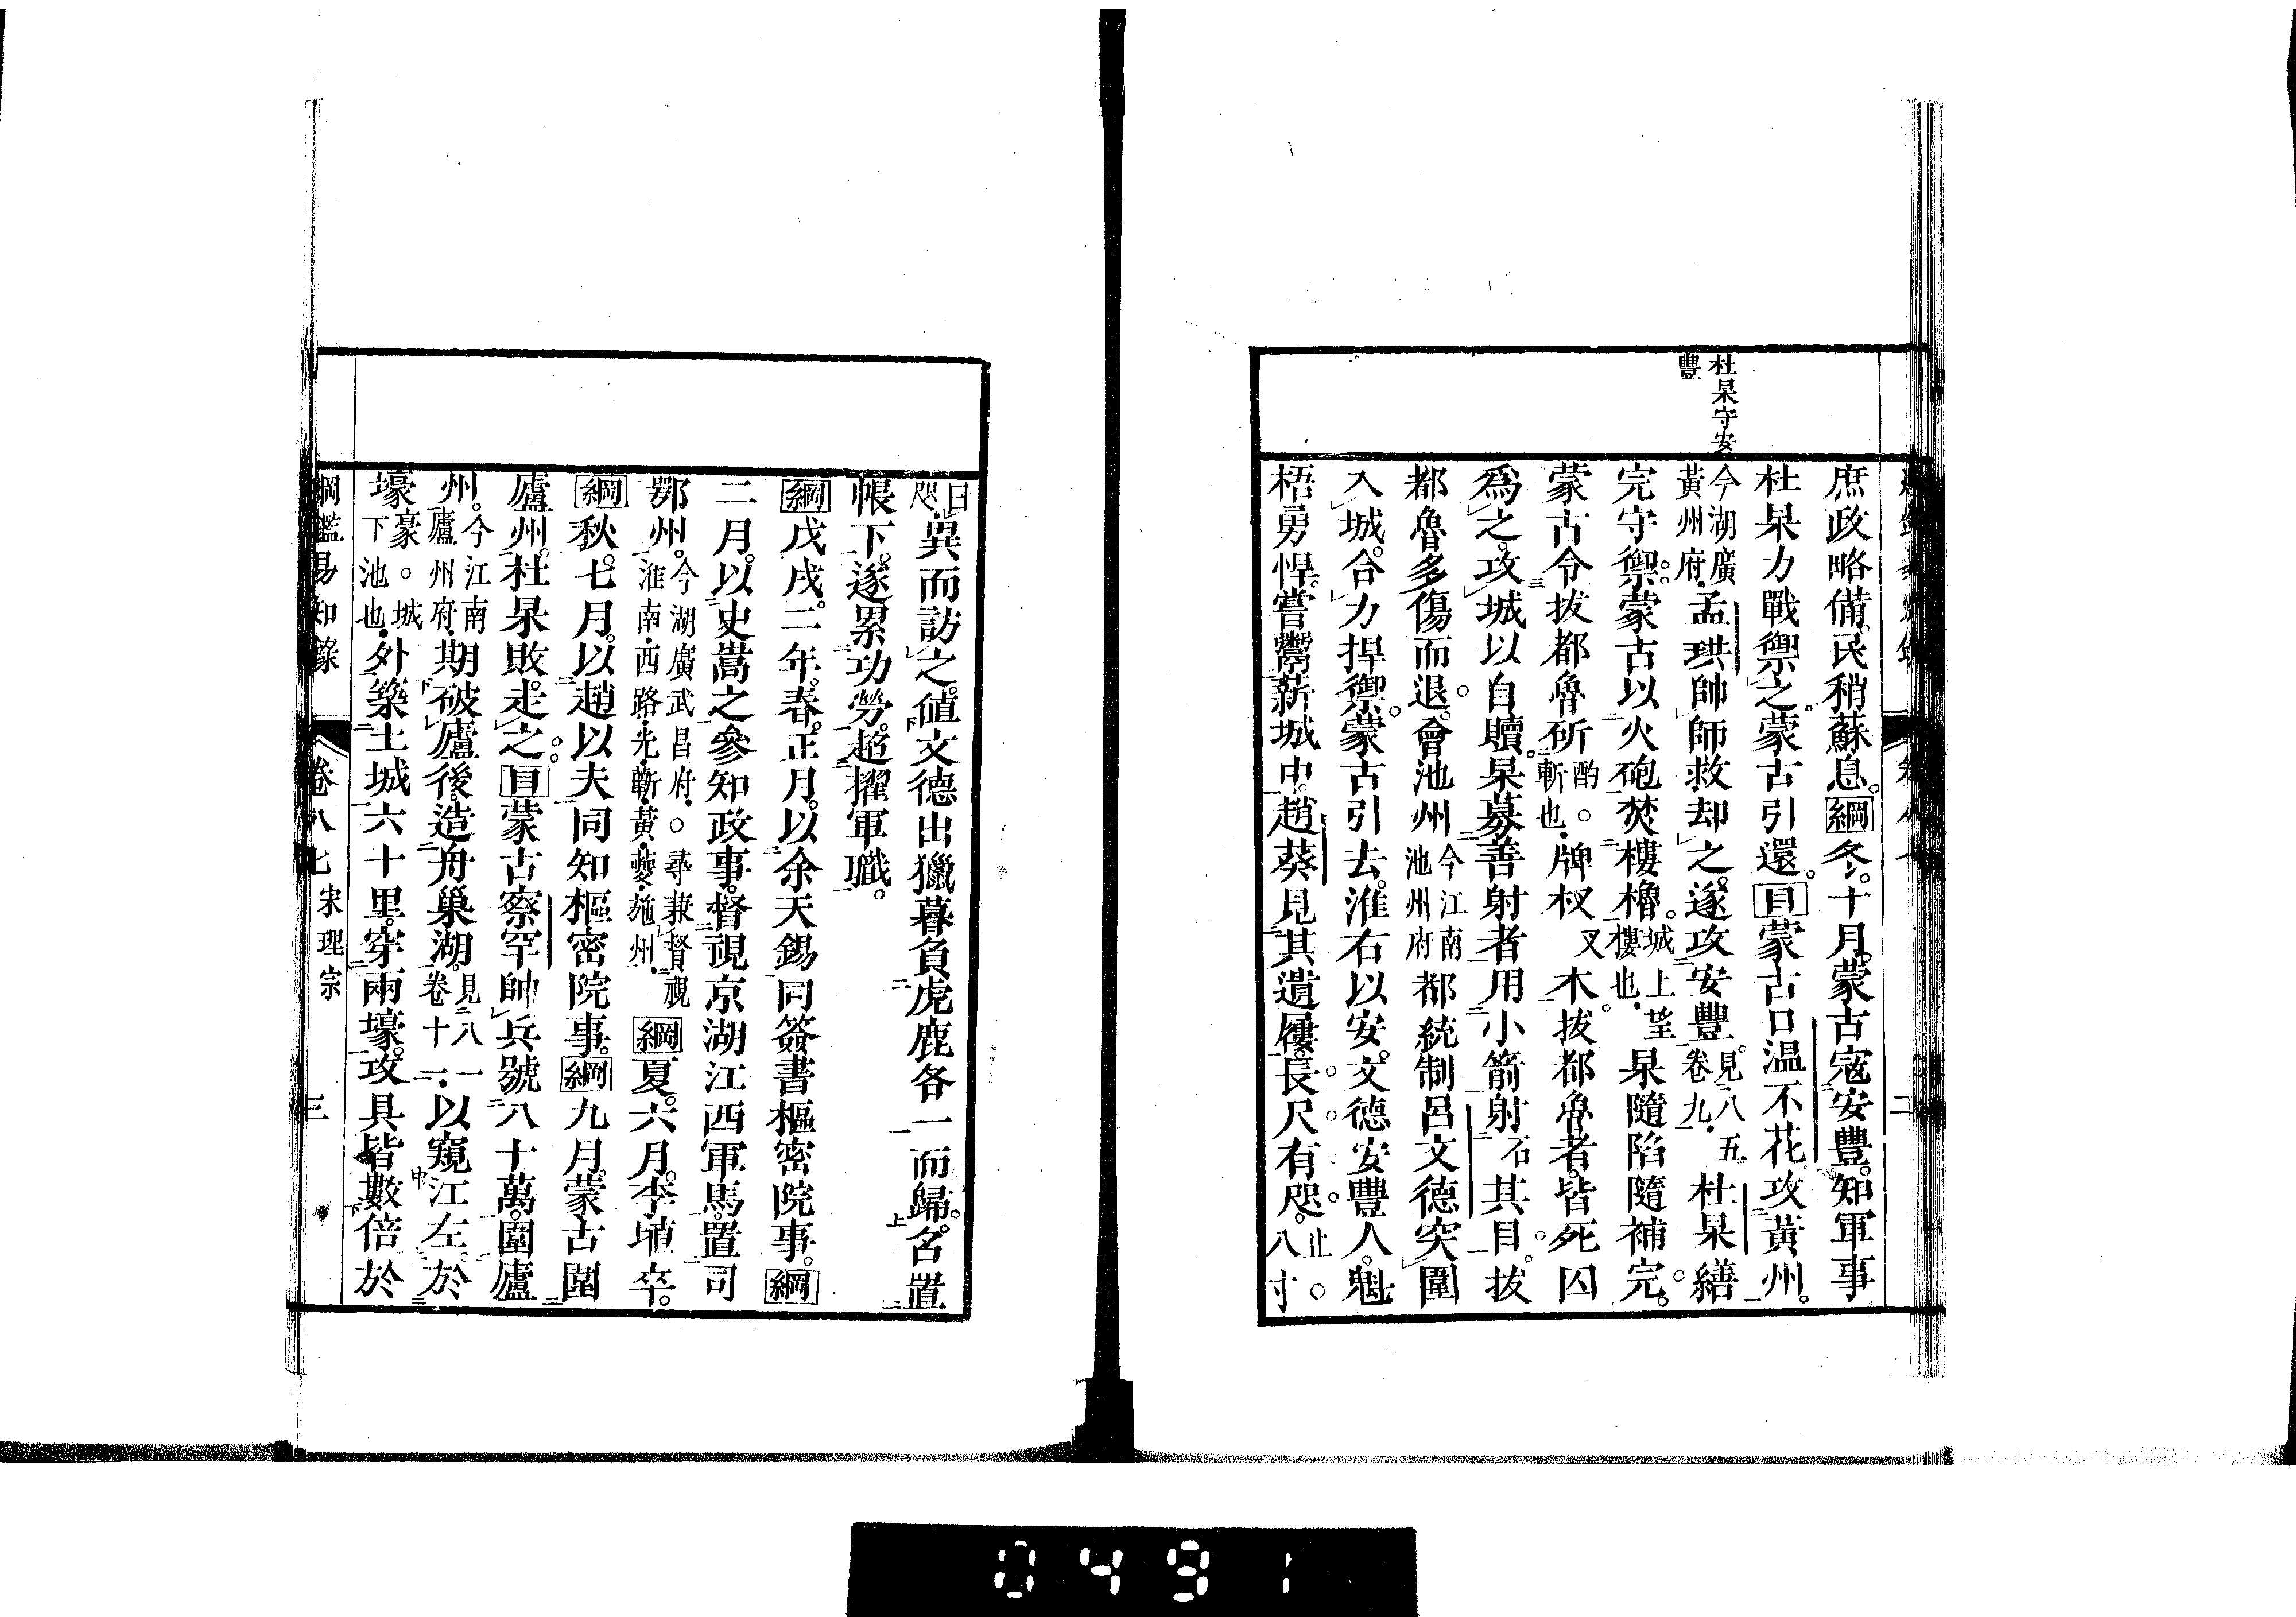 杜杲守安
豐
庶政略備。民稍蘇息。綱冬。十月。蒙古寇安豐。知軍事
杜杲力戰禦之。蒙古引還。目蒙古口温不花攻黃州。
今湖廣黃州府.孟珙帥師救却之。遂攻安豐。見八五卷九.杜杲繕
完守禦。蒙古以火砲焚樓櫓。城上望樓也.杲隨陷隨補完。
蒙古令拔都魯斫酌○斬也.牌杈叉木。拔都魯者。皆死囚
爲之。攻城以自贖。杲募善射者用小箭射石其目。拔
都魯多傷而退。會池州今江南池州府都統制呂文德突圍
入城。合力捍禦。蒙古引去。淮右以安。文德安豐人。魁
梧勇悍。嘗鬻薪城中。趙葵見其遺屨。長尺有咫。止○八寸
曰咫.異而訪之。値文德出獵暮負虎鹿各一而歸。召置
帳下。遂累功勞。超擢軍職。
綱戊戌。二年。春。正月。以余天錫同簽書樞密院事。綱
二月。以史嵩之參知政事。督視京湖江西軍馬。置司
鄂州。今湖廣武昌府.○尋兼督視淮南.西路.光.蘄.黃.夔.施州.綱夏。六月。李埴卒。
綱秋。七月。以趙以夫同知樞密院事。綱九月。蒙古圍
廬州。杜杲敗走之。目蒙古察罕帥兵號八十萬。圍廬
州。今江南廬州府.期破廬後。造舟巢湖。見八一卷十一.以窺江左。於
壕豪○城下池也.外築土城六十里。穿兩壕。攻具皆數倍於
綱鑑易知錄　卷八七　宋理宗　三
0491